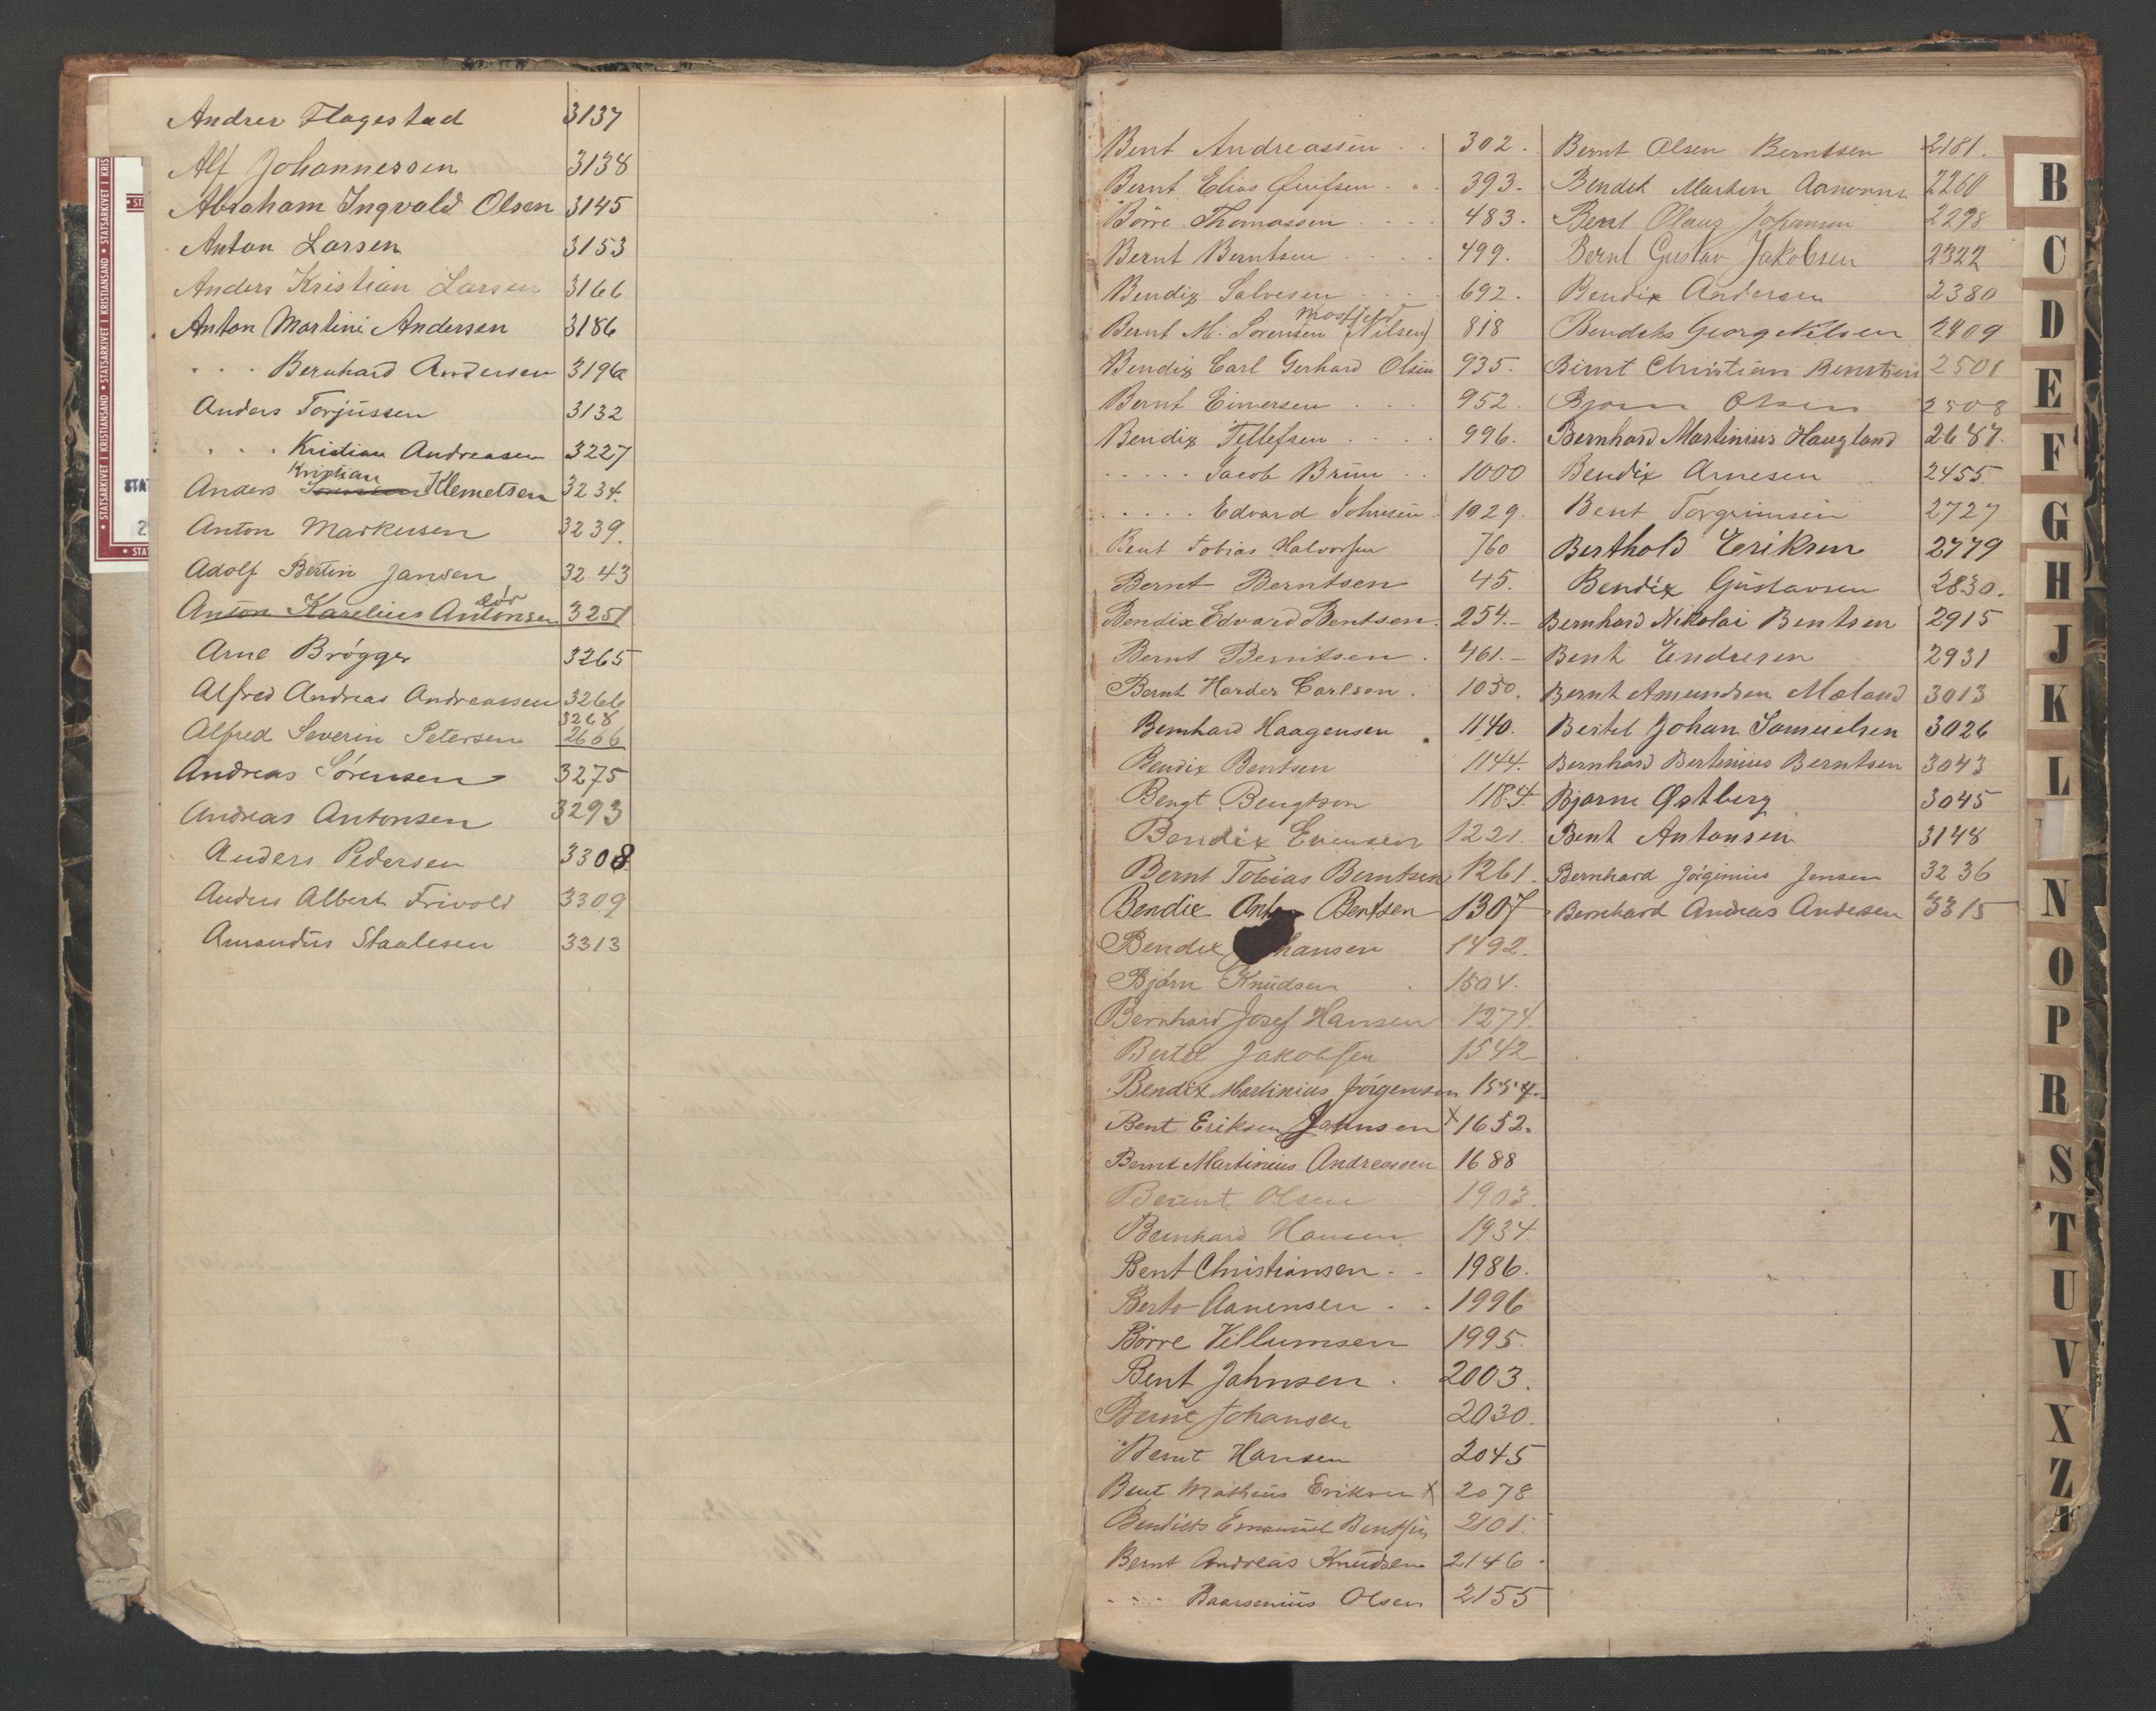 Andrer Flagestad 3137
Alf Johannessen 3138
Abraham Ingvald Olsen 3145
Anton Larsen 3153
Anders Kristian Larsen 3166
Anton Martini Andersen 3186
. . . Bernhard Andersen 3196
Anders Torjussen 3132
. . . Kristian Andreasen 3227
Kristian
Anders Klemetsen 3234.
Anton Markusen 3239.
Adolf Bertin Jansen 3243
Anton Karelius Antonsen 3251
Arne Brøgger 3265
Alfred Andreas Andreassen 3266
3268
Alfred Severin Petersen 2666
Andreas Sørensen 3275
Andreas Antonsen 3293
Anders Pedersen 3308
Anders Albert Frivold 3309
Amandus Staalesen 3313
Bent Andreassen . . 302.
Bernt Elias . . 393.
Börre Thomassen . . . . 483.
Bernt Berntsen . . . . 499.
Bendix Salvesen . . . . 692.
Mosfjeld
Bernt M. Sorensen (Nilsen) 818
Bendix Carl Gerhard Olsen 935.
Bernt Einersen . . . 952.
Bendix Tellefsen . . . . 996.
. . . . . Jacob Brun . . 1000
. . . . . Edvard Johnsen . 1029.
Bent Tobias Halvorsen 760
Bernt Berntsen 45.
Bendix Edvard Bentsen. 254.-
Bernt Berntsen . 461.-
Bernt Harder Carlson . 1050.
Bernhard Haagensen 1140.
Bendix Bentsen 1144.
Bengt Bengtson 1184
Bendix Evensen 1221.
Bernt Tobias Berntsen 1261.
Bendix Anton Bentsen 1307
Bendix hansen 1492.
Bjørn Knudsen . 1504.
Bernhard Josef Hansen 1274.
Bertel Jakobsen 1542
Bendix Martinius Jørgensen 1554.
Bent Eriksen Jahnsen x 1652.
Bernt Martinius Andreassen 1688
Berent Olsen 1903.
Bernhard Hansen 1934.
Bent Christiansen . . 1986.
Berto Aanensen . . 1996
Börre Villumsen 1995.
Bent Jahnsen . 2003.
Bernt Johansen 2030.
Bernt Hansen 2045
Bent Mathias Eriksen x 2078
Bendiets Emanuel Bentsen 2101.
Bernt Andreas Knudsen 2146.
. . . . Baarsenius Olsen 2155
Bernt Olsen Berntsen 2181.
Bendik Martin 2260
Bent Olaug Johansen 2298
Bernt Gustav Jakobsen 2322
Bendix Andersen 2380
Bendiks Georg Nilsen 2409
Bernt Christian Berntsen 2501
Bjørn Olsen 2508
Bernhard Martinius Haugland 2687.
Bendix Arnesen 2455.
Bent Torgrimsen 2727
Berthold Eriksen 2779
Bendix Gustavsen 2830.
Bernhard Nikolai Bentsen 2915
Bent Endresen 2931
Bernt Amundsen Mæland 3013
Bertel Johan Samuelsen 3026
Bernhard Bertinius Berntsen 3043
Bjarne Østberg 3045
Bent Antonsen 3148
Bernhard Jørginius Jensen 3236
Bernhard Andreas Andersen 3315
B
C
D
E
F
G
H
J
K
L
N
O
P
R
S
T
U
V
X
Z
Æ
STATSARKIVET I KRISTIANSAND • STATSARKIVET I KRIS